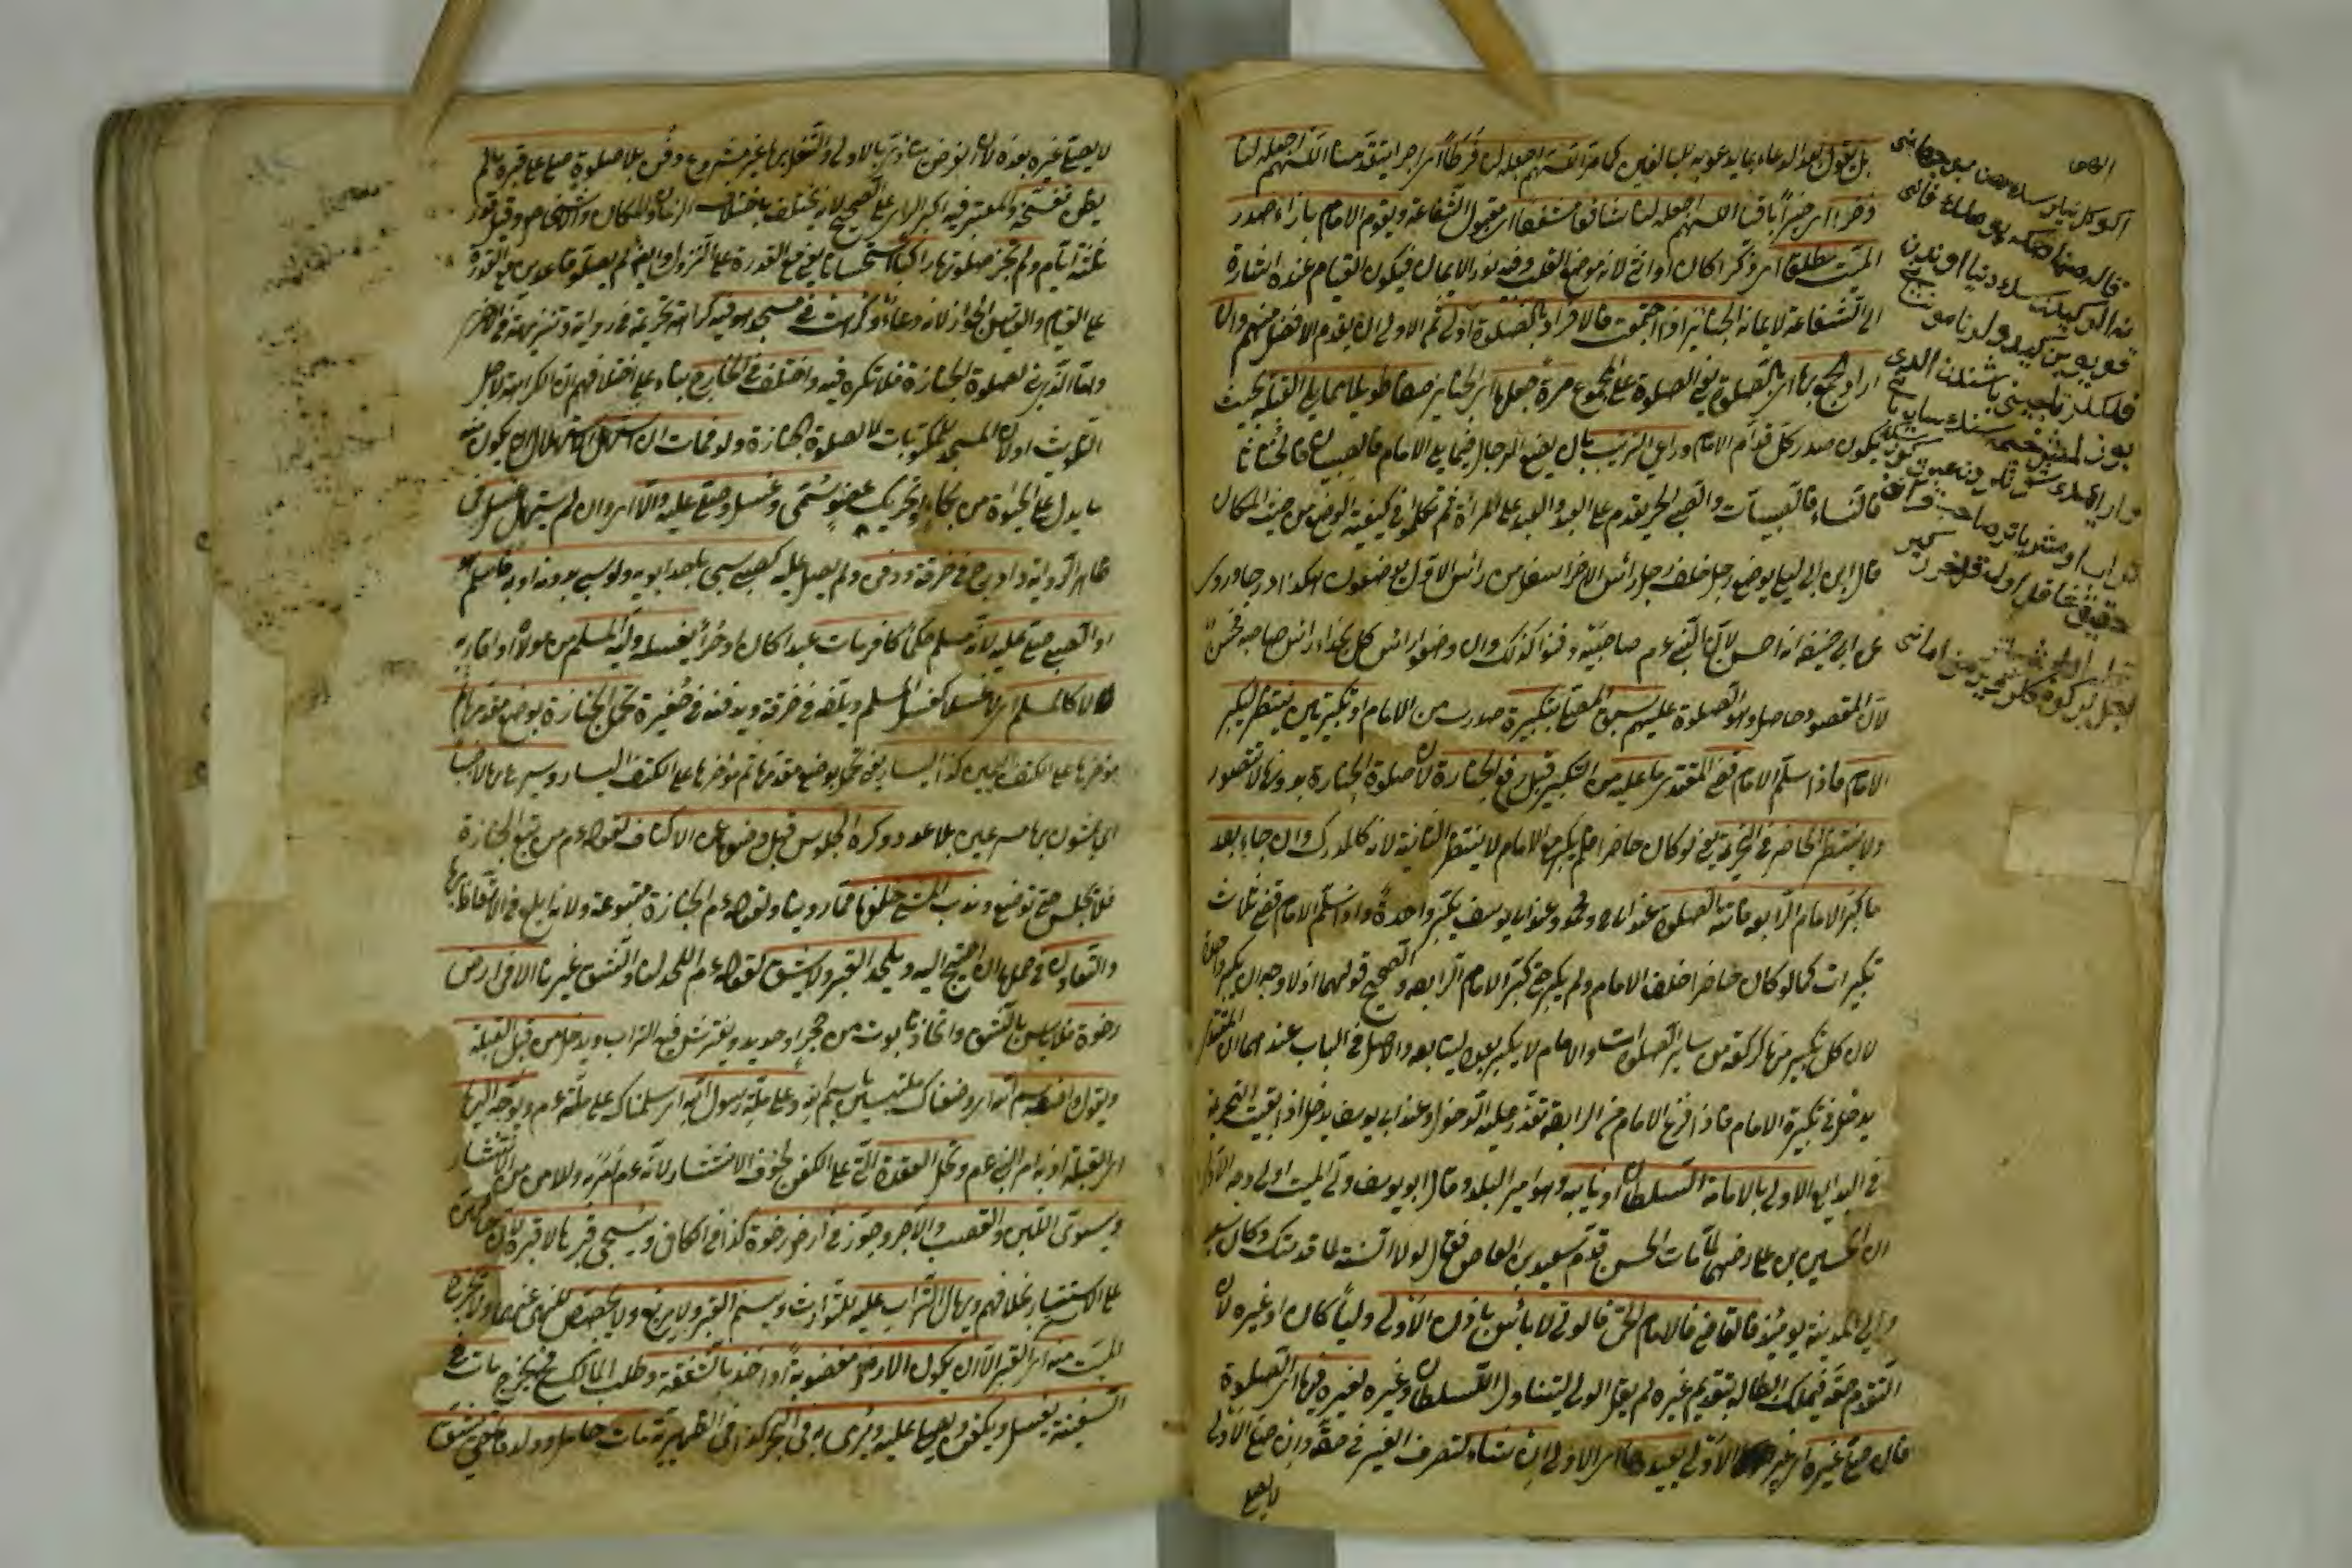 بل يقول بعد الدعاء بما يدعو به للبالغين كما مر اللهم اجعله لنا فرطا اى اجرا يتقدمنا اللهم اجعله لنا
ذخرا اى خيرا باقيا اللهم اجعله لنا شافعا مشفعا اى مقبول الشفاعة ويقوم الامام بازاء صدر
الميت مطلقا اى ذكرا كان او انثى لانه موضع القلب وفيه نور الايمان فيكون القيام عنده اشارة
الى الشفاعة لايمانه الجنائز اذا اجتمعت فالافراد بالصلوة اولى ثم الاولى ان يقدم الافضل منهم وان
اراد الجمع بها اى بالصلوة يعنى الصلوة على المجموع مرة جعلها اى الجنائز صفا طويلا مما يلى القبلة بحيث
يكون صدر كل قدام الامام وراعى الترتيب بان يضع الرجال فيما يلى الامام فالصبيان فالخناثا
فالنساء فالصبيات والصبى الحر يقدم على العبد والعبد على المرأة ثم تكلموا فى كيفية الوضع من حيث المكان
قال ابن ابى ليلى يوضع رجل خلف رجل رأس الاخر اسفل من رأس الاول يوضعون هكذا وروى
عن ابى حنيفة انه احسن لان النبى عم وصاحبيه دفنوا كذلك وان وضعوا رأس كل بحذاء رأس صاحبه فحسن
لان المقصود حاصل وهو الصلوة عليهم سبق المصلى بتكبيرة صدرت من الامام او تكبيرتين ينتظر ليكبر
الامام فاذا سلم الامام قضى المقتدى ما عليه من التكبير قبل رفع الجنازة لان صلوة الجنازة بدونها لا تتصور
ولا ينتظر الحاضر فى التحريمة يعنى لو كان حاضرا فلم يكبر مع الامام لا ينتظر الثانية لانه كالمدرك وان جاء بعد
ما كبر الامام الرابعة فاتته الصلوة عند ابى ح ومحمد وعند ابى يوسف يكبر واحدة واذا سلم الامام قضى ثلاث
تكبيرات كما لو كان حاضرا خلف الامام ولم يكبر حتى كبر الامام الرابعة والصحيح قولهما اذ لا وجه ان يكبر وحده
لان كل تكبير منها كركعة من سائر الصلوات والامام لا يكبر بعده ليتابعه والاصل فى الباب عندهما ان المقتدى
يدخل فى تكبيرة الامام فاذا فرغ الامام من الرابعة تعذر عليه الدخول وعند ابى يوسف يدخل اذا بقيت التحريمة
فى البدايع الاولى بالامامة السلطان او نائبه وهو امير البلد وقال ابو يوسف ولى الميت اولى وجه الاول
ان الحسين بن على رضهما لما مات الحسن قدم سعيد بن العاص فقال لولا السنة لما قدمتك وكان سعيد
والى المدينة يومئذ فالقاضى فالامام الحى فالولى لا بأس باذن الاولى وليا كان او غيره لان
التقدم حقه فيملك ابطاله بتقديم غيره لم يقل الولى ليتناول السلطان وغيره لغيره فيها اى الصلوة
فان صلى غيره اى غير الاولى يعيدها اى الاولى ان شاء لتصرف الغير فى حقه وان صلى الاولى
لا يصلى
لا يصلى غيره بعده لان الفرض يتأدى بالاولى والتنفل بها غير مشروع دفن بلا صلوة صلى على قبره ما لم
يظن تفسخه والمعتبر فيه اكبر الراى على الصحيح لانه يختلف باختلاف الزمان والمكان والاشخاص وقيل قدر
ثلثة ايام ولم تجز صلوتها راكبا استحسانا يعنى مع القدرة على النزول وايضا لم يصلوا قاعدين مع القدرة
على القيام والقياس الجواز لانه دعاء وكرهت فى مسجد هو فيه كراهة تحريمية فى رواية وتنزيهية فى الاخرى
واما الذى بنى لصلوة الجنازة فلا تكره فيه واختلف فى الخارج بناء على اختلافهم ان الكراهة لاجل
التلويث او لان المسجد للمكتوبات لا لصلوة الجنازة ولو فمات ان استهل الاستهلال ان يكون منه
ما يدل على الحيوة من بكاء او تحريك عضو سمى وغسل وصلى عليه والا اى وان لم يستهل غسل فى
ظاهر الرواية وادرج فى خرقة ودفن ولم يصل عليه كصبى سبى باحد ابويه ولو سبى بدونه او به فاسلم
او الصبى صلى عليه لانه مسلم حكما كافر مات عبدا كان او حرا يغسله وليه المسلم من مولاه او اقاربه
لا كالمسلم اى لا غسلا كغسل المسلم ويلفه فى خرقة ويدفنه فى حفيرة تحمل الجنازة بوضع مقدمها
مؤخرها على الكتف اليمين كذا اليسار يعنى ثم بوضع مقدمها ثم مؤخرها على الكتف اليسار ويسرعون بها لا خببا
اى يمشون بها مسرعين بلا عدو وكره الجلوس قبل وضعها عن الاكتاف لقوله عم من تبع الجنازة
فلا يجلس حتى توضع وندب المشى خلفها لما روينا ولقوله عم الجنازة متبوعة ولانه ابلغ فى الاتعاظ بها
والتعاون فى حملها ان احتيج اليه ويلحد القبر ولا يشق لقوله عم اللحد لنا والشق لغيرنا الا فى ارض
رخوة فلا بأس بالشق واتخاذ تابوت من حجر او حديد ويفترش فيه التراب ويدخل من قبل القبلة
ويقول واضعه بسم الله اى وضعناك ملتبسين باسم الله وعلى ملة رسول الله اى سلمناك على ملته عم ويوجه اليها
اى القبلة اذ به امر النبى عم وتحل العقدة التى على الكفن لخوف الانتشار لانه عم امر به ولا من من الانتشار
ويسوى اللبن والقصب والآجر وجوز فى ارض رخوة كذا فى الكافى ويسجى قبرها لا قبره لان حالهن
على الاستتار بخلافهم ويهال التراب عليه للتوارث ويسنم القبر ولا يربع ولا يجصص للنهى عنهما ولا يخرج
الميت منه اى القبر الا ان يكون الارض مغصوبة او اخذ بالشفعة وطلب المالك فيخرج مات فى
السفينة يغسل ويكفن ويصلى عليه ويرمى به فى البحر كذا فى الظهيرية مات حامل وولدها حى يشق